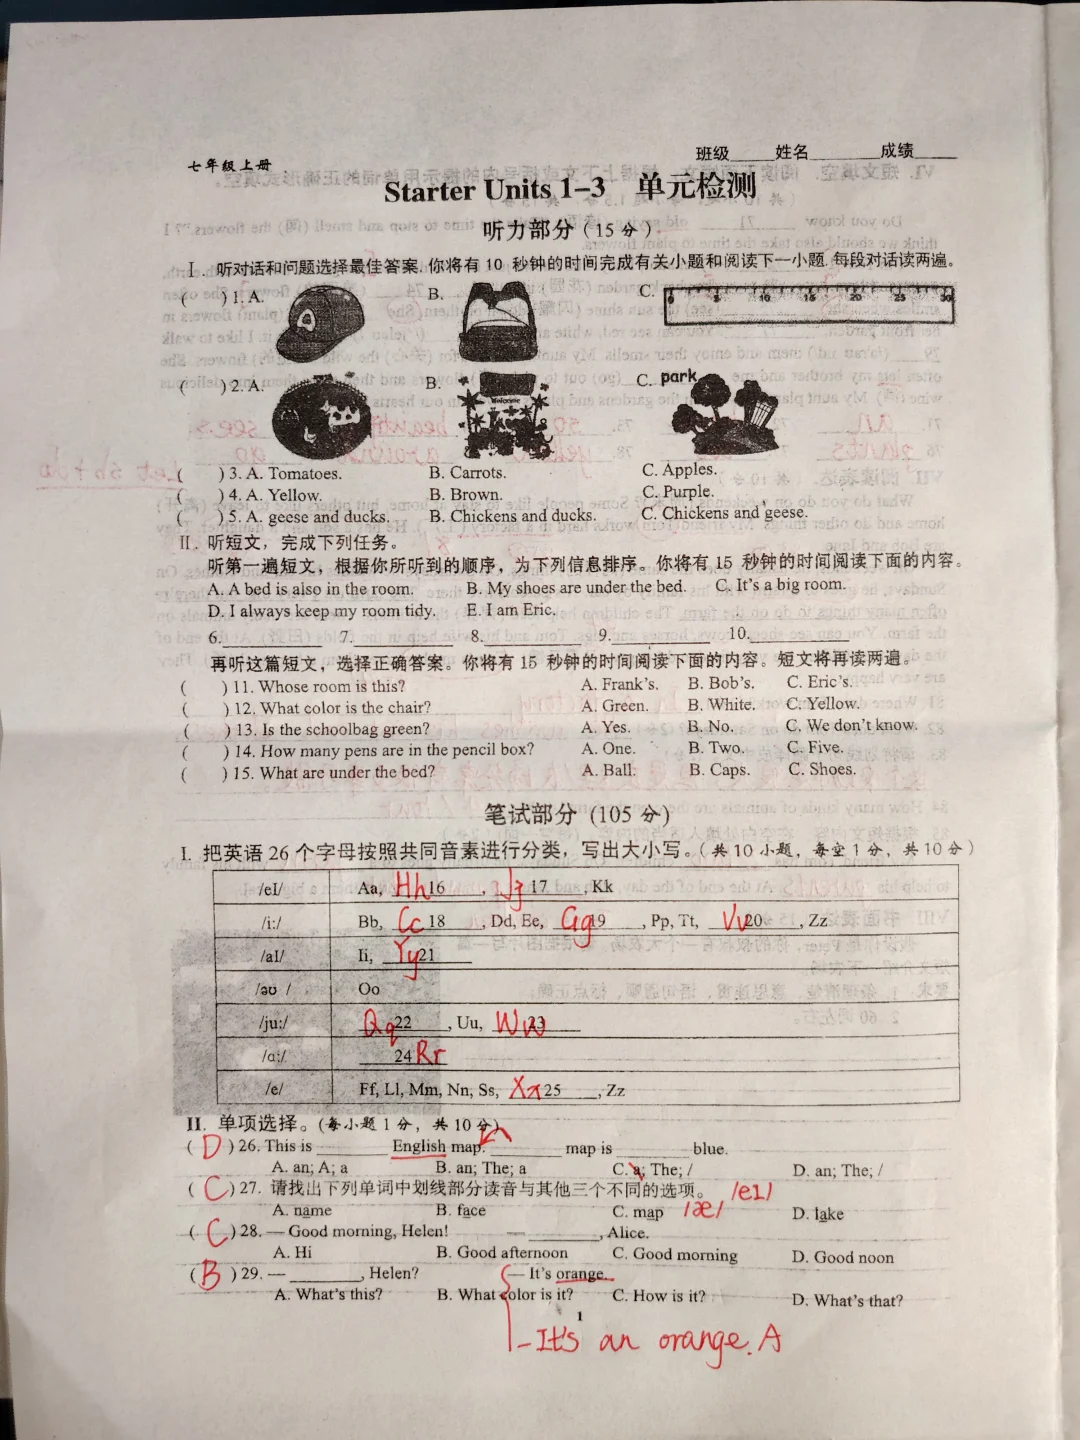 七年级上册
班级_____姓名_______成绩_____
Starter Units 1-3 单元检测
听力部分(15分)
Ⅰ. 听对话和问题选择最佳答案.你将有 10 秒钟的时间完成有关小题和阅读下一小题.每段对话读两遍。
( )1. A. B. C.
0 5 10 15 20 25 30
( )2. A. B. C. park
Welcome
( )3. A. Tomatoes. B. Carrots. C. Apples.
( )4. A. Yellow. B. Brown. C. Purple.
( )5. A. geese and ducks. B. Chickens and ducks. C. Chickens and geese.
Ⅱ. 听短文，完成下列任务。
听第一遍短文，根据你所听到的顺序，为下列信息排序。你将有 15 秒钟的时间阅读下面的内容。
A. A bed is also in the room. B. My shoes are under the bed. C. It's a big room.
D. I always keep my room tidy. E. I am Eric.
6.__________ 7.__________ 8.__________ 9.__________ 10.__________
再听这篇短文，选择正确答案。你将有 15 秒钟的时间阅读下面的内容。短文将再读两遍。
( )11. Whose room is this? A. Frank's. B. Bob's. C. Eric's.
( )12. What color is the chair? A. Green. B. White. C. Yellow.
( )13. Is the schoolbag green? A. Yes. B. No. C. We don't know.
( )14. How many pens are in the pencil box? A. One. B. Two. C. Five.
( )15. What are under the bed? A. Ball. B. Caps. C. Shoes.
笔试部分 (105 分)
I. 把英语 26 个字母按照共同音素进行分类，写出大小写。(共 10 小题，每空 1 分，共 10 分)
/eI/ Aa, Hh 16 , Jj 17 , Kk
/i:/ Bb, Cc 18 , Dd, Ee, Gg 19 , Pp, Tt, Vv 20 , Zz
/aI/ Ii, Yy 21
/əʊ / Oo
/ju:/ Qq 22 , Uu, Ww 23
/ɑ:/ 24 Rr
/e/ Ff, Ll, Mm, Nn, Ss, Xx 25 , Zz
II. 单项选择。(每小题 1 分，共 10 分)
( D )26. This is ________ English map. ________ map is ________ blue.
A. an; A; a B. an; The; a C. a; The; / D. an; The; /
( C )27. 请找出下列单词中划线部分读音与其他三个不同的选项。 /eI/
A. name B. face C. map /æ/ D. lake
( C )28. — Good morning, Helen! — ________, Alice.
A. Hi B. Good afternoon C. Good morning D. Good noon
( B )29. — ________, Helen? — It's orange.
A. What's this? B. What color is it? C. How is it? D. What's that?
1
-It's an orange. A